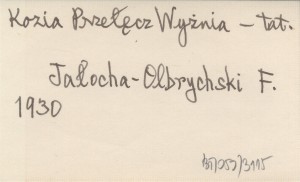 Kozia Przełęcz Wyżnia – tat.
Jałocha-Olbrychski F.
1930